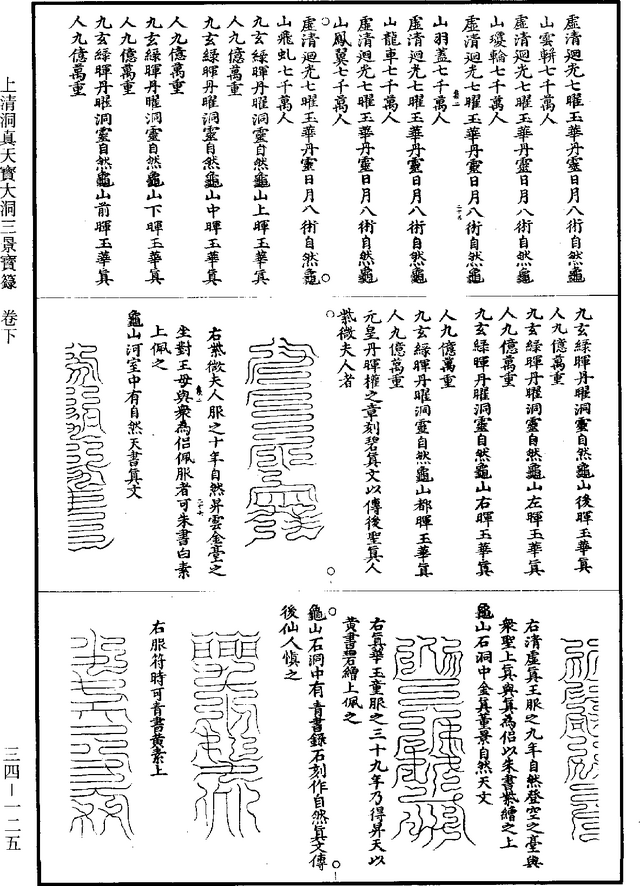 上清洞真天寶大洞三景寶籙　卷下
虛清迴光七曜玉華丹靈日月八術自然龜
山雲軿七千萬人
虛清迴光七曜玉華丹靈日月八術自然龜
山瓊輪七千萬人
虛清迴光七曜玉華丹靈日月八術自然龜
山羽蓋七千萬人
虛清迴光七曜玉華丹靈日月八術自然龜
山龍車七千萬人
虛清迴光七曜玉華丹靈日月八術自然龜
山鳳翼七千萬人
虛清迴光七曜玉華丹靈日月八術自然龜
山飛虬七千萬人
九玄綠暉丹曜洞靈自然龜山上暉玉華真
人九億萬重
九玄綠暉丹曜洞靈自然龜山中暉玉華真
人九億萬重
九玄綠暉丹曜洞靈自然龜山下暉玉華真
人九億萬重
九玄綠暉丹曜洞靈自然龜山前暉玉華真
人九億萬重
九玄綠暉丹曜洞靈自然龜山後暉玉華真
人九億萬重
九玄綠暉丹曜洞靈自然龜山左暉玉華真
人九億萬重
九玄綠暉丹曜洞靈自然龜山右暉玉華真
人九億萬重
九玄綠暉丹曜洞靈自然龜山都暉玉華真
人九億萬重
元皇丹暉權之章刻碧真文以傳後聖真人
紫微夫人者
右紫微夫人服之十年自然昇雲金臺之
坐對王母與衆為侶佩服者可朱書白素
上佩之
龜山河室中有自然天書真文
右清虛真王服之九年自然登空之臺與
衆聖上真與真為侶以朱書紫繒之上
龜山石洞中金真董景自然天文
右真華玉童服之三十九年乃得昇天以
黃書碧繒上佩之
龜山石洞中有青書錄石刻作自然真文傳
後仙人慎之
右服符時可青書黃素上
三四－一二五